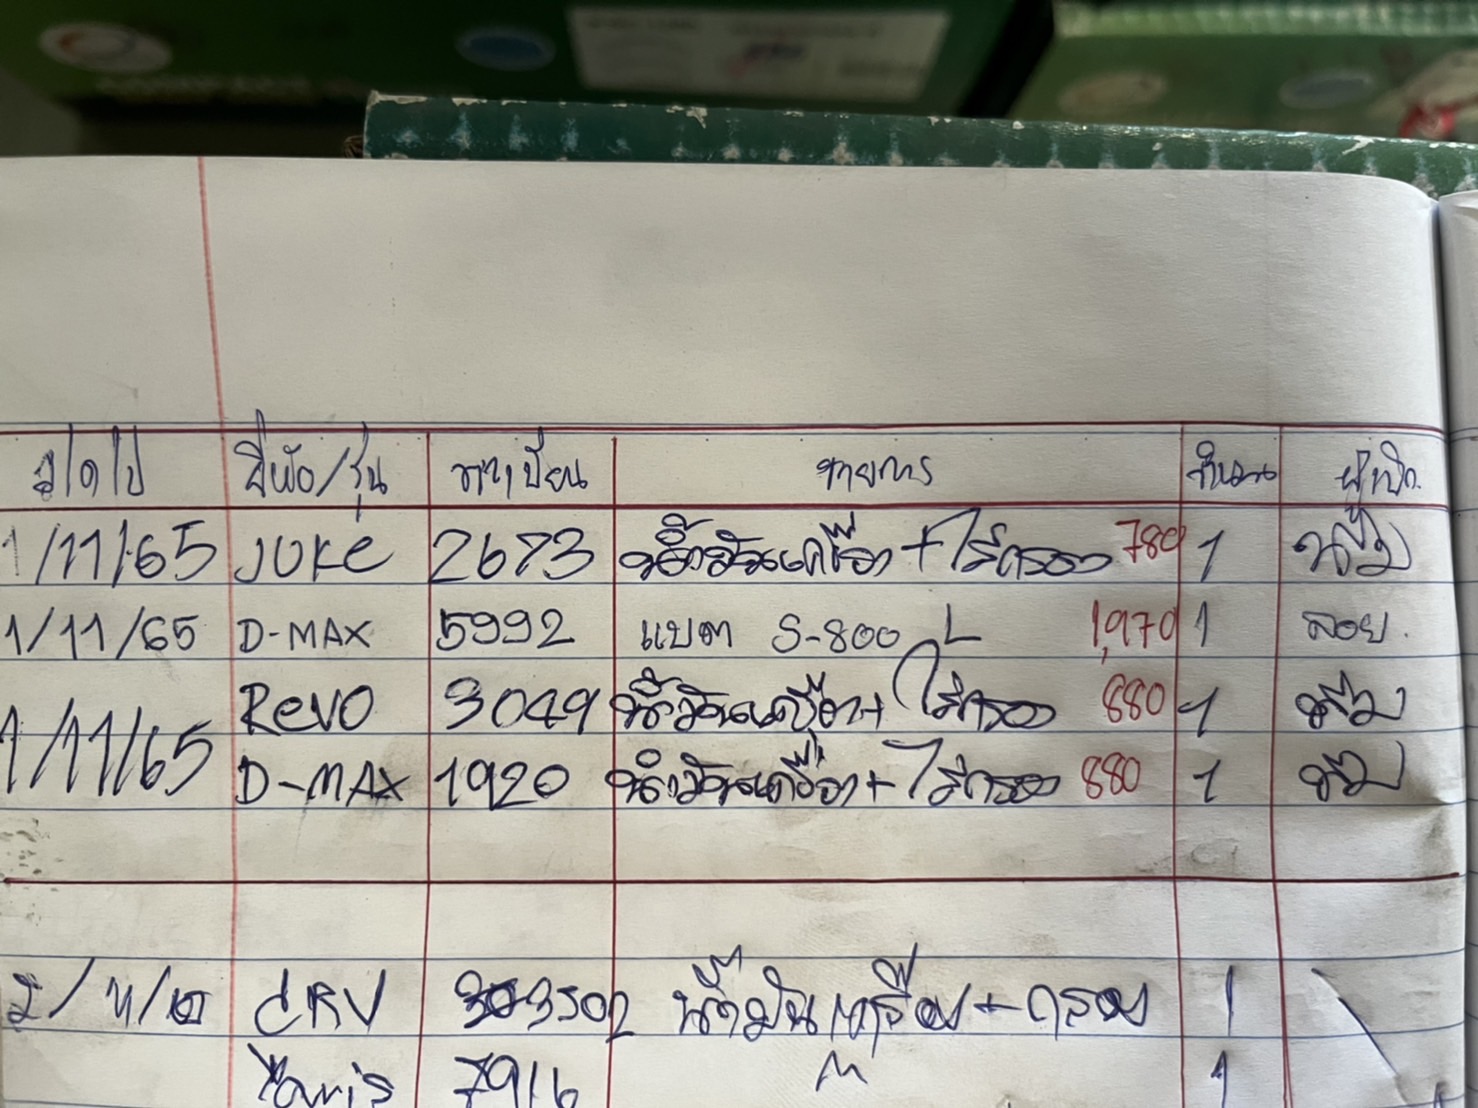 ว/ด/ป ยี่ห้อ/รุ่น ทะเบียน รายการ จำนวน ผู้เบิก
1/11/65 JUKE 2673 น้ำมันเครื่อง+ไส้กรอง 780 1
1/11/65 D-MAX 5992 แบต S-800 L 1,970 1 ลอย.
1/11/65 Revo 3049 น้ำมันเครื่อง+ไส้กรอง 880 1
D-MAX 1920 น้ำมันเครื่อง+ไส้กรอง 880 1
CRV 3502 น้ำมันเครื่อง+กรอง 1
Yaris 7916 1